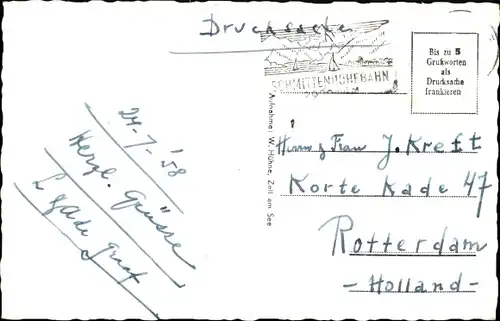 Drucksache
SCHMITTENHÖHEBAHN
Bis zu 5
Grußworten
als
Drucksache
frankieren
24-7-'58
Herzl. Grüsse
Aufnahme: W. Hühne, Zell am See
Herrn & Frau J. Kreft
Korte Kade 47
Rotterdam
- Holland -